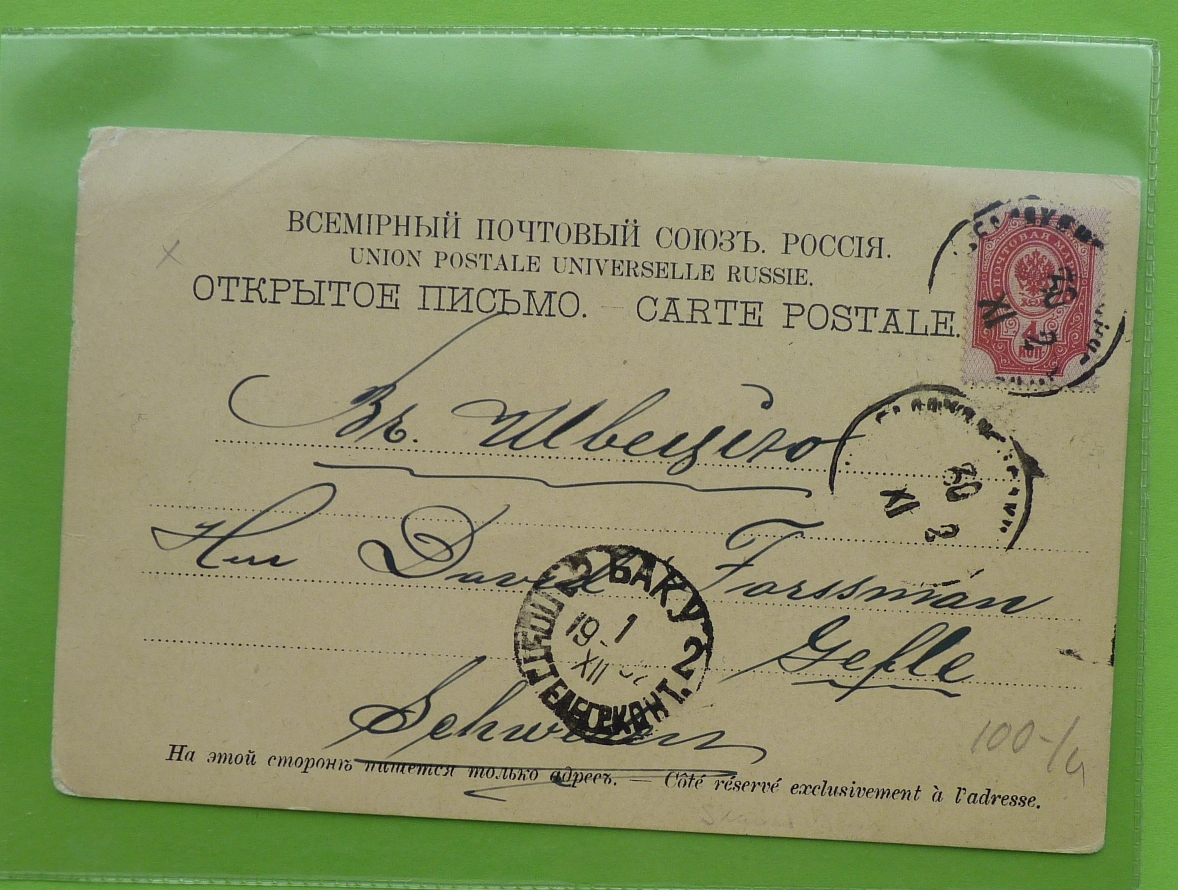 ВСЕМІРНЫЙ ПОЧТОВЫЙ СОЮЗЪ. РОССІЯ.
UNION POSTALE UNIVERSELLE RUSSIE.
ОТКРЫТОЕ ПИСЬМО. — CARTE POSTALE.
ПОЧТОВАЯ МАРКА
4
КОП
30
XI
2
Въ Швецію
30
XI
2
Herr David Forssman
2 БАКУ 2
19 1
XII 02
ПОЧТ. ТЕЛЕГР. КОНТ.
Gefle
Schweden
100-/4
На этой сторонѣ пишется только адресъ. — Côté réservé exclusivement à l'adresse.